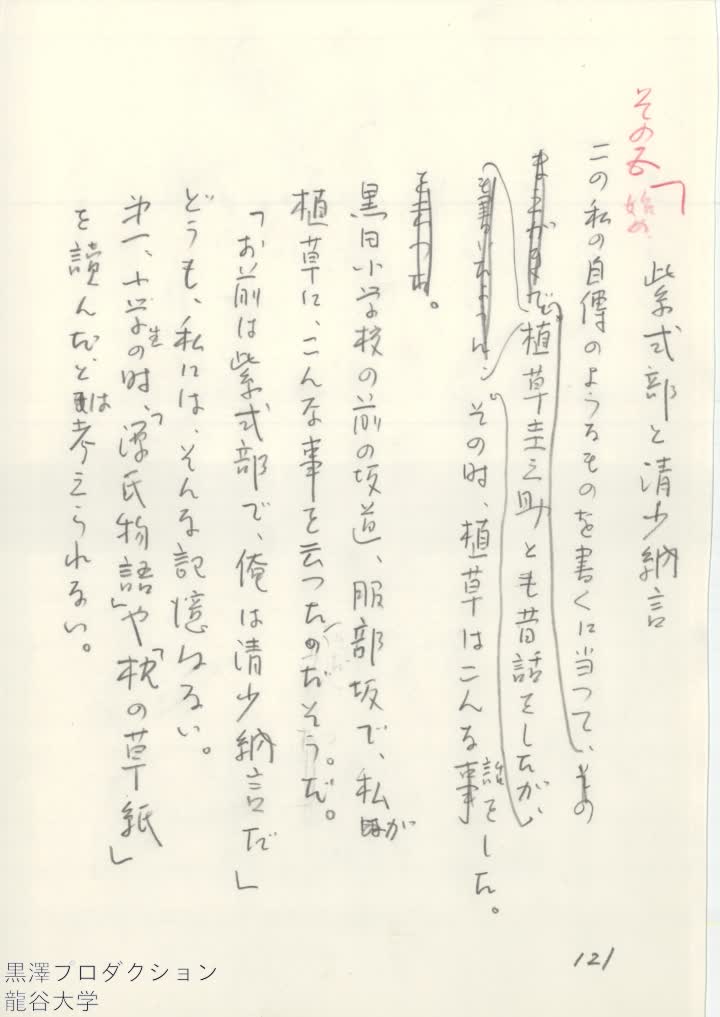 その五
始め
紫式部と清少納言
この私の自傳のようなものを書くに当って、その
植草圭之助とも昔話をしたが、
その時、植草はこんな話をした。
黒田小学校の前の坂道、服部坂で、私が
植草に、こんな事を云ったのだそうだ。
「お前は紫式部で、俺は清少納言だ」
どうも、私には、そんな記憶はない。
第一、小学生の時、「源氏物語」や「枕の草紙」
を讀んだ、とは考えられない。
121
黒澤プロダクション
龍谷大学